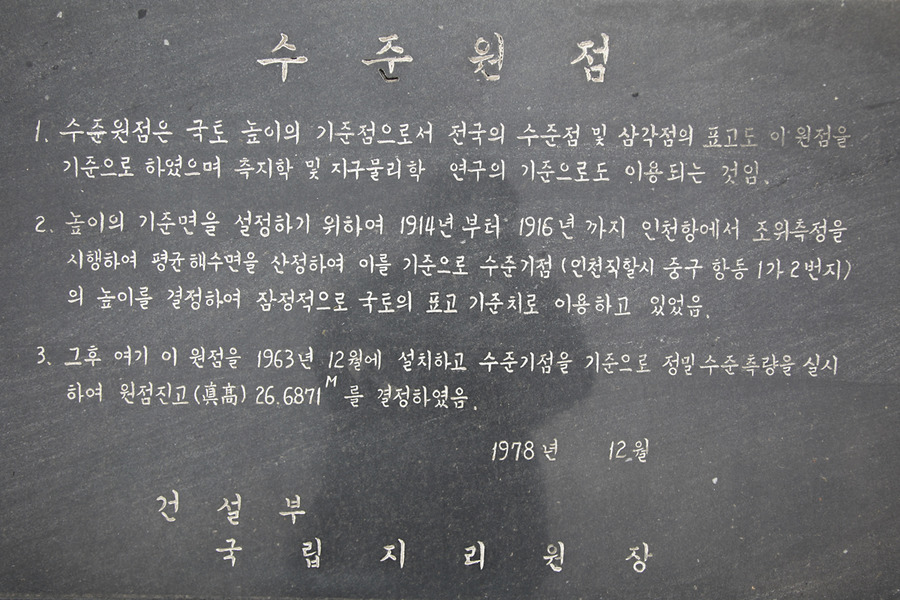 수준원점
1. 수준원점은 국토 높이의 기준점으로서 전국의 수준점 및 삼각점의 표고도 이 원점을
기준으로 하였으며 측지학 및 지구물리학 연구의 기준으로도 이용되는 것임.
2. 높이의 기준면을 설정하기 위하여 1914년 부터 1916년 까지 인천항에서 조위측정을
시행하여 평균해수면을 산정하여 이를 기준으로 수준기점 (인천직할시 중구 항동 1가 2번지)
의 높이를 결정하여 잠정적으로 국토의 표고 기준치로 이용하고 있었음.
3. 그후 여기 이 원점을 1963년 12월에 설치하고 수준기점을 기준으로 정밀수준측량을 실시
하여 원점진고(眞高) 26.6871M를 결정하였음.
1978년 12월
건설부
국립지리원장